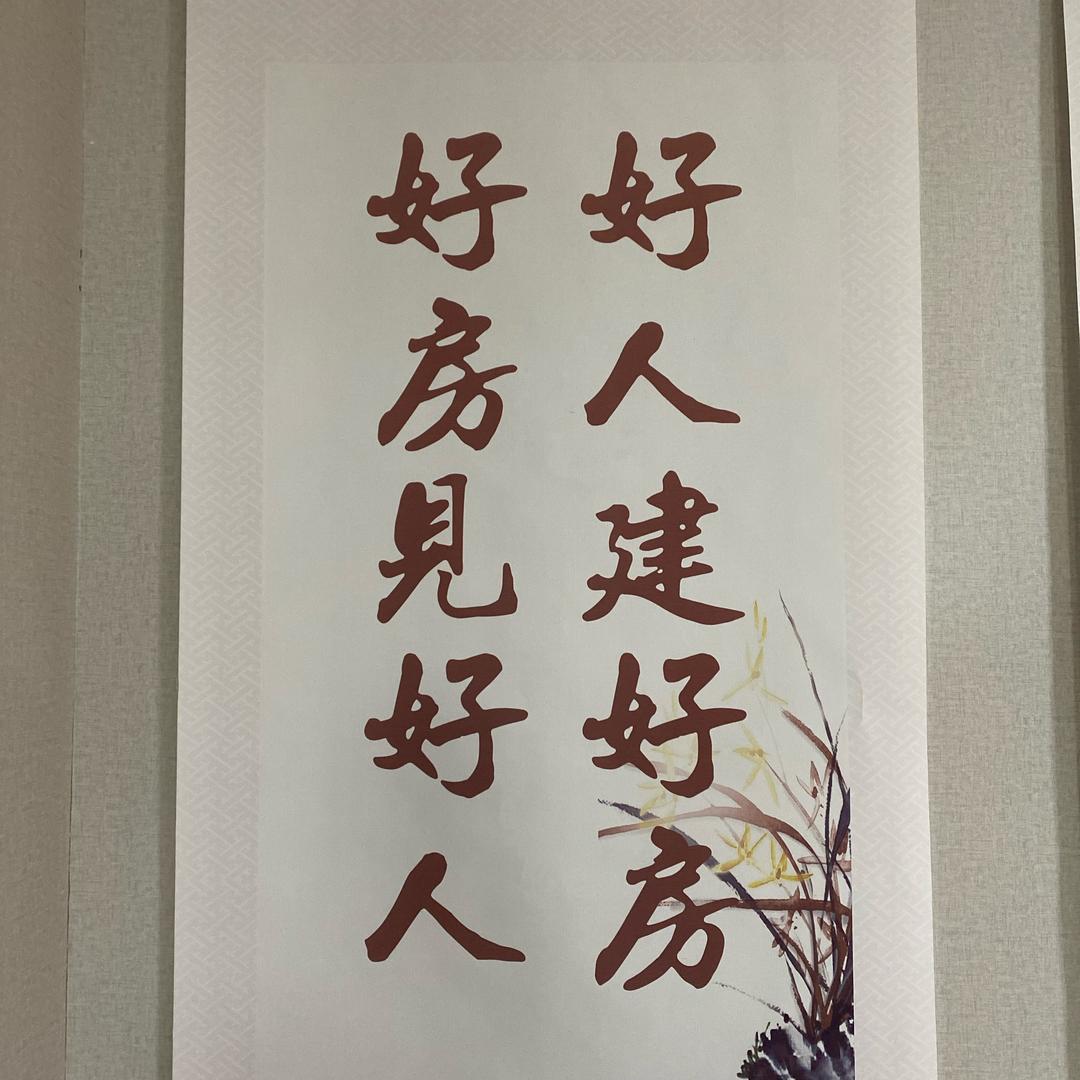 好人建好房
好房見好人